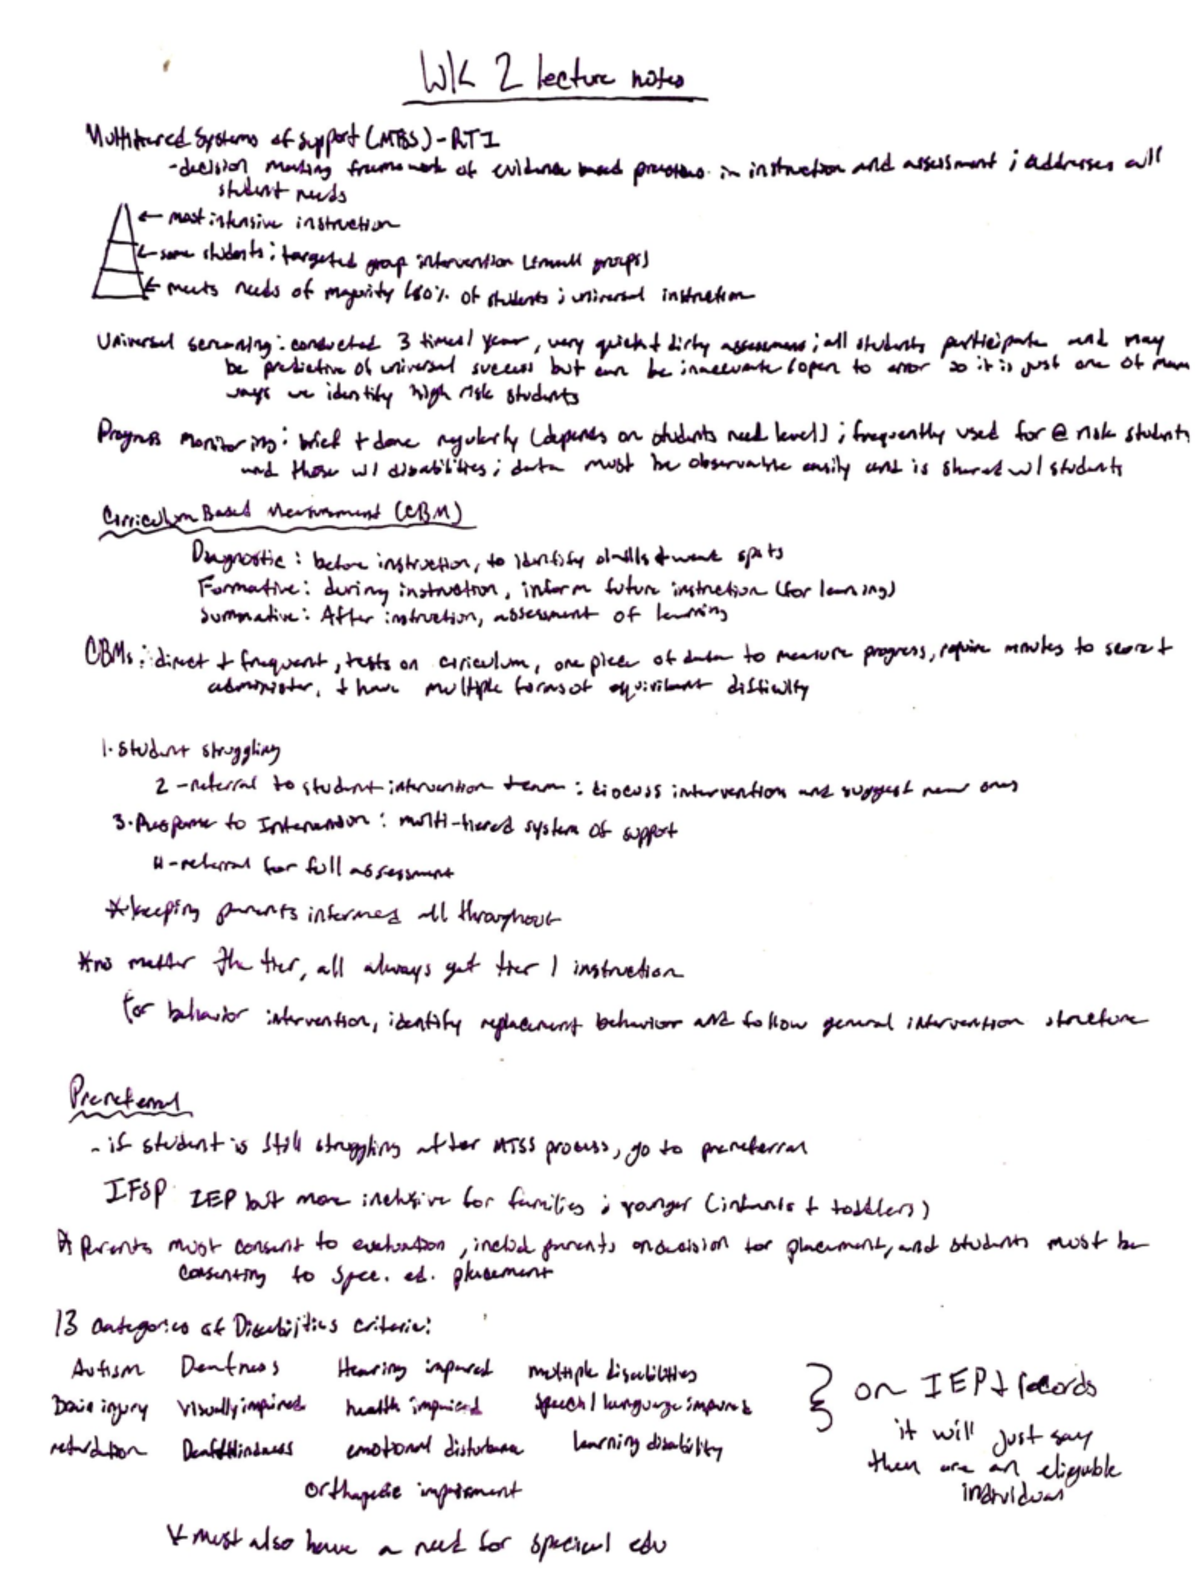 WK 2 lecture notes
Multitiered Systems of Support (MTSS) - RTI
- decision making framework of evidence based practices in instruction and assessment ; addresses all
student needs
← most intensive instruction
← some students ; targeted group intervention (small groups)
← meets needs of majority (80% of students ; universal instruction
Universal screening: conducted 3 times/year, very quick + dirty assessment ; all students participate and may
be predictive of universal success but can be inaccurate/open to error so it is just one of many
ways we identify high risk students
Progress monitoring: brief + done regularly (depends on students need level) ; frequently used for @ risk students
and those w/ disabilities ; data must be observable easily and is shared w/ students
Curriculum Based Measurement (CBM)
Diagnostic: before instruction, to identify skills + weak spots
Formative: during instruction, inform future instruction (for learning)
Summative: After instruction, assessment of learning
CBMs: direct + frequent, tests on curriculum, one piece of data to measure progress, require minutes to score +
administer, + have multiple forms of equivilant difficulty
1. Student struggling
2 - referral to student intervention team : discuss intervention and suggest new ones
3. Response to Intervention : multi-tiered system of support
4 - referral for full assessment
* keeping parents informed all throughout
* no matter the tier, all always get tier 1 instruction
for behavior intervention, identify replacement behavior and follow general intervention structure
Prereferral
- if student is still struggling after MTSS process, go to prereferral
IFSP IEP but more inclusive for families ; younger (infants + toddlers)
* Parents must consent to evaluation, includ parents on decision for placement, and students must be
consenting to spec. ed. placement
13 categories of Disabilities criteria:
Autism Deafness Hearing impaired multiple disabilities
Brain injury visually impaired health impaired speech/language impaired
retardation Deafblindness emotional disturbance learning disability
orthopedic impairment
} on IEP + records
it will just say
they are an eligible
individual
* must also have a need for special edu